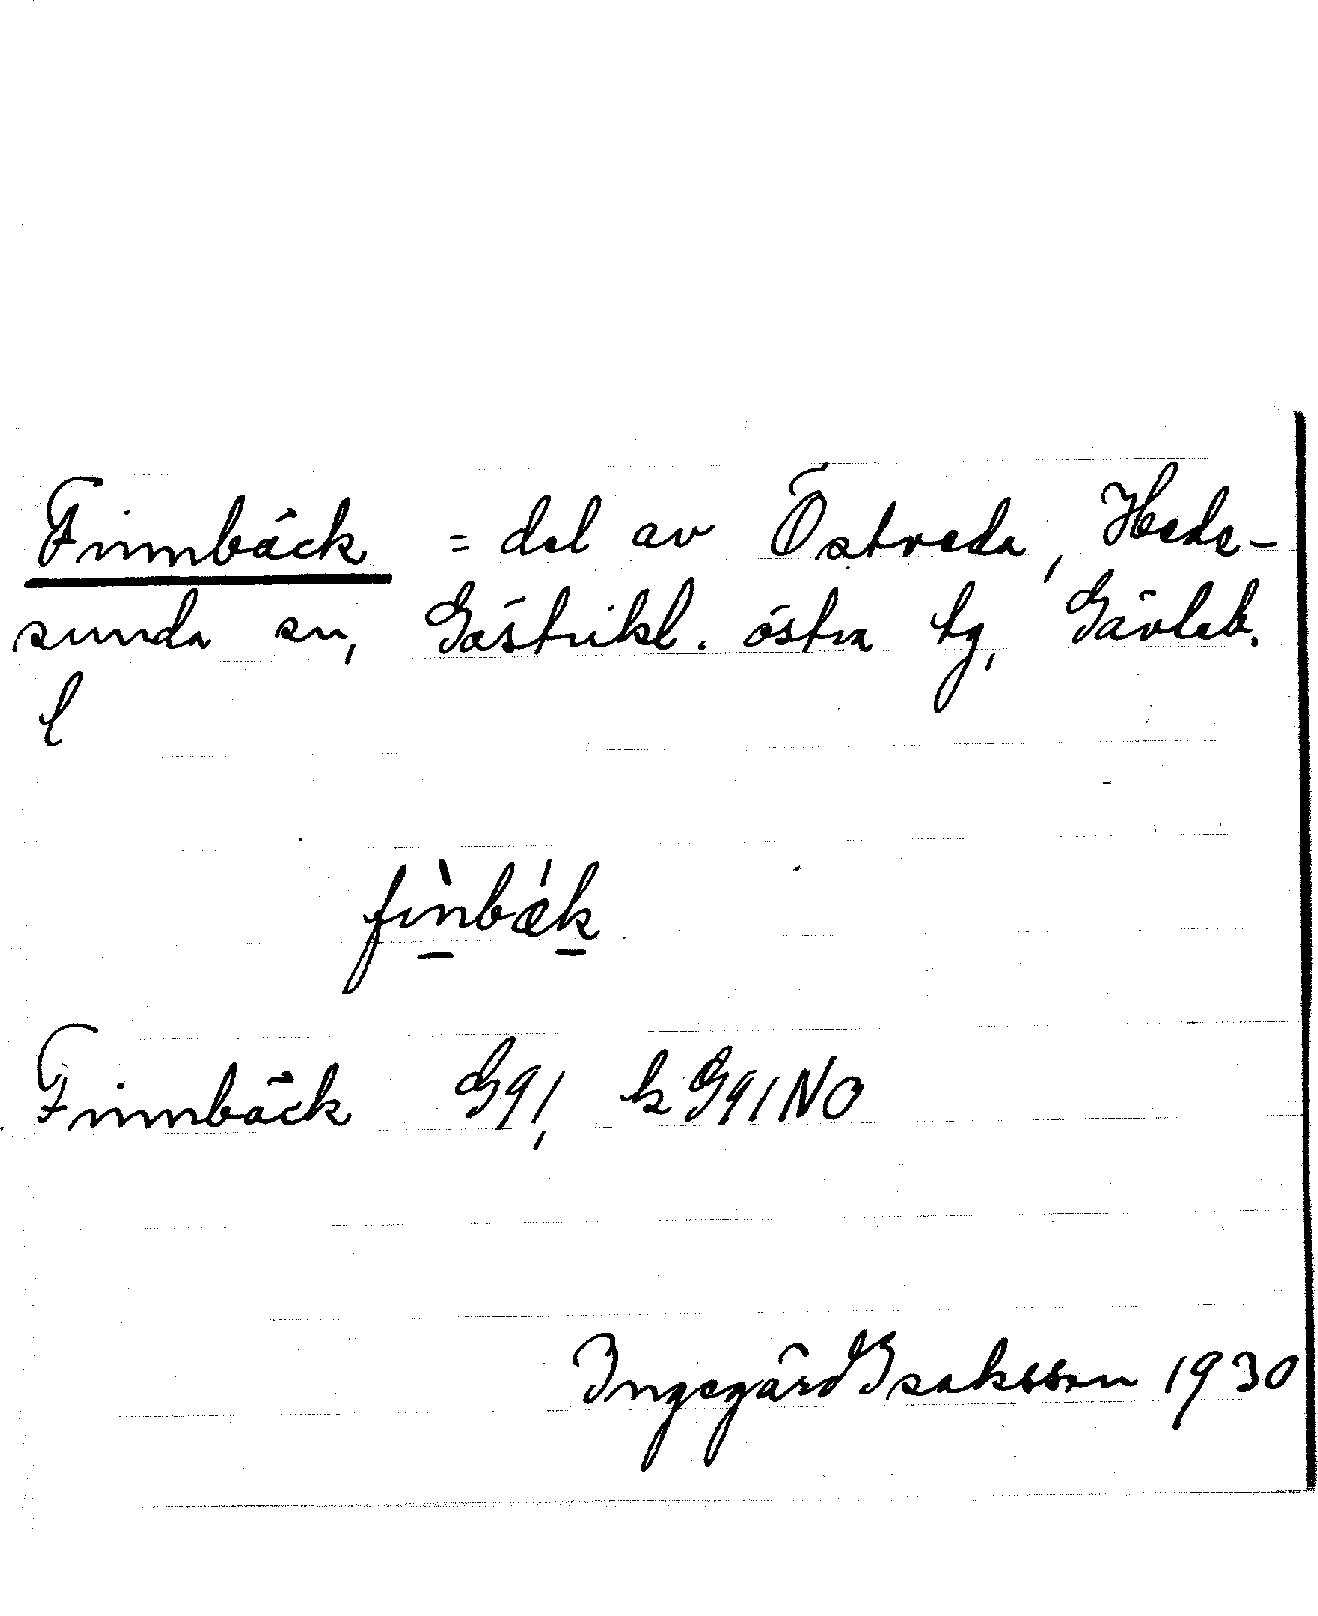 Finnbäck = del av Östveda, Hede-
sunda sn, Gästrikl. östra tg, Gävleb.
l
fìnbǽk
Finnbäck G91, k G91NO
Ingegärd Isaksson 1930